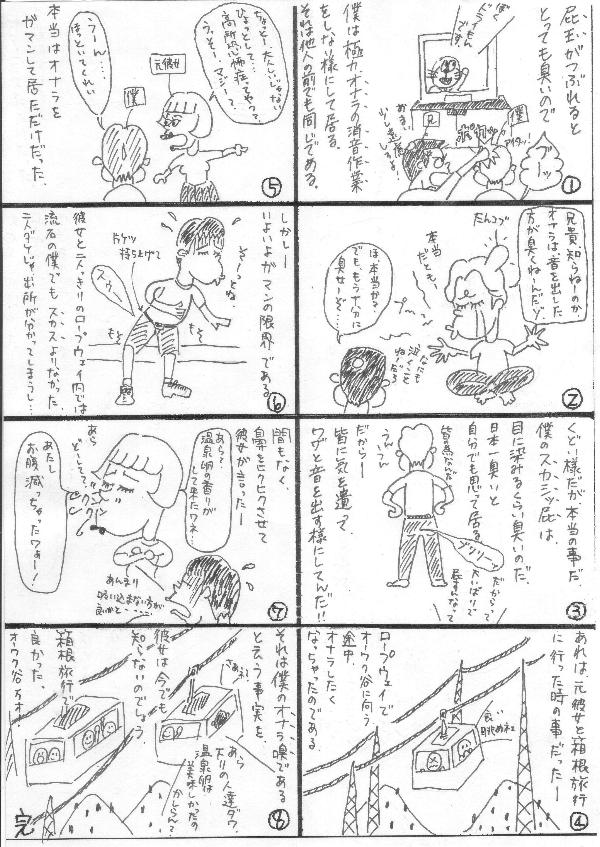 屁玉がつぶれると
とっても臭いので
僕は極力オナラの消音作業
をしない様にして居る。
それは他人の前でも同じである。
ぼく
ドラえもん
です
僕
ブーッ
①
兄貴、知らねーのか
オナラは音を出した
方が臭くねーんだゾ。
たんコブ
本当
だとも、
ほ、本当かよ
でも、もう十分に
臭せーぞ…
なにも
泣くこと
ねーだろ
②
くどい様だが本当の事だ。
僕のスカシッ屁は、
目に染みるくらい臭いのだ。
日本一臭いと
自分でも思って居る。
だからー
皆に気を遣って、
ワザと音を出す様にしてんだ!!
皆の為なんだ
うん、うん
だからって
③
あれは、元彼女と箱根旅行
に行った時の事だったー
ロープウェイで
オウク谷に向う
途中、
オナラしたく
なっちゃったのである。
良い
眺めネェ
④
ちょっとー大人しいじゃない
ひょっとして
高所恐怖症ってヤツ?
うっそー、マジー?
元彼女
うーん…
ほっといてくれい
僕
本当はオナラを
ガマンして居ただけだった。
⑤
しかしー
いよいよガマンの限界である。
彼女と二人きりのロープウェイ内では
流石の僕でもスカスよりなかった。
二人ダケじゃ出所が分かってしまうし…
片ケツ
持ち上げて
スゥー
もそ
もそ
⑥
間もなく、
鼻をヒクヒクさせて
彼女が言ったー
あら?
温泉卵の香りが
して来たワネ…
あら
どうして?
クン
クン
あたし
お腹減っちゃったワぁー!
あんまり
吸い込まない方が
良いかと…
⑦
それは僕のオナラ臭である
と云う事実を、
彼女は今でも
知らないのでしょう。
箱根旅行で
良かった。
オウク谷万才。
あら
下りの人達ダワ、
温泉卵は
美味しかったの
かしらん?
⑧
完